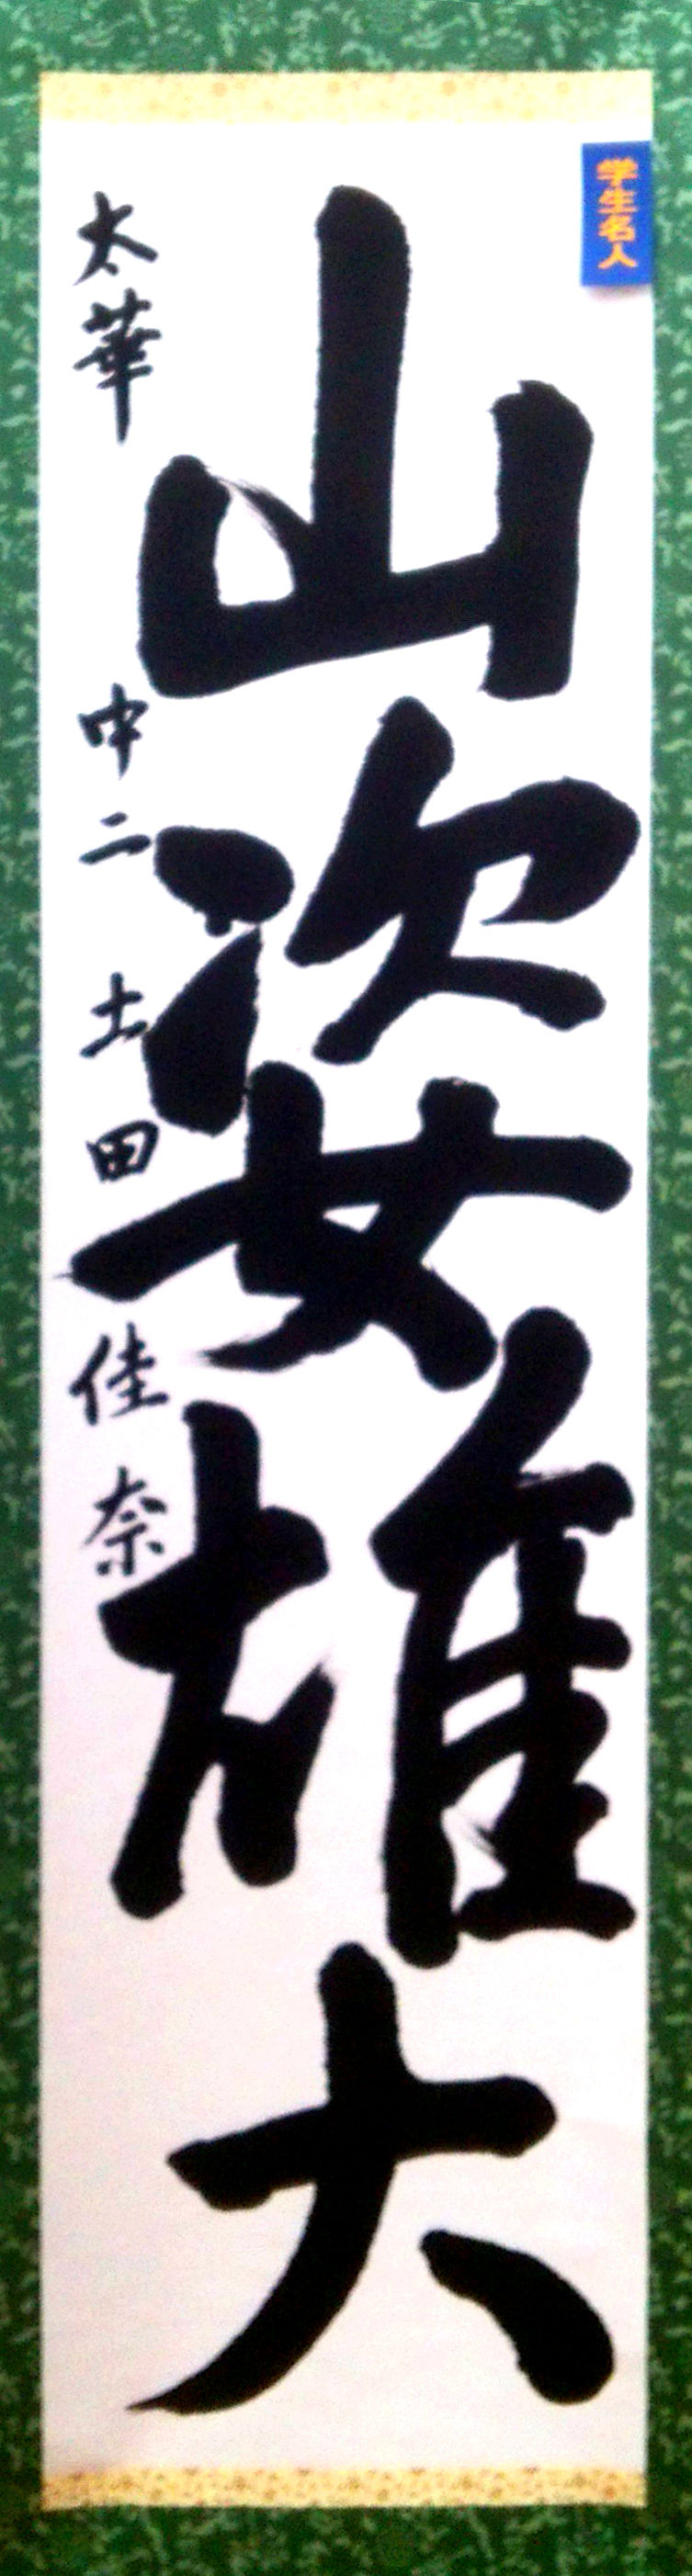 学生名人
山姿雄大
太華 中二 土田佳奈